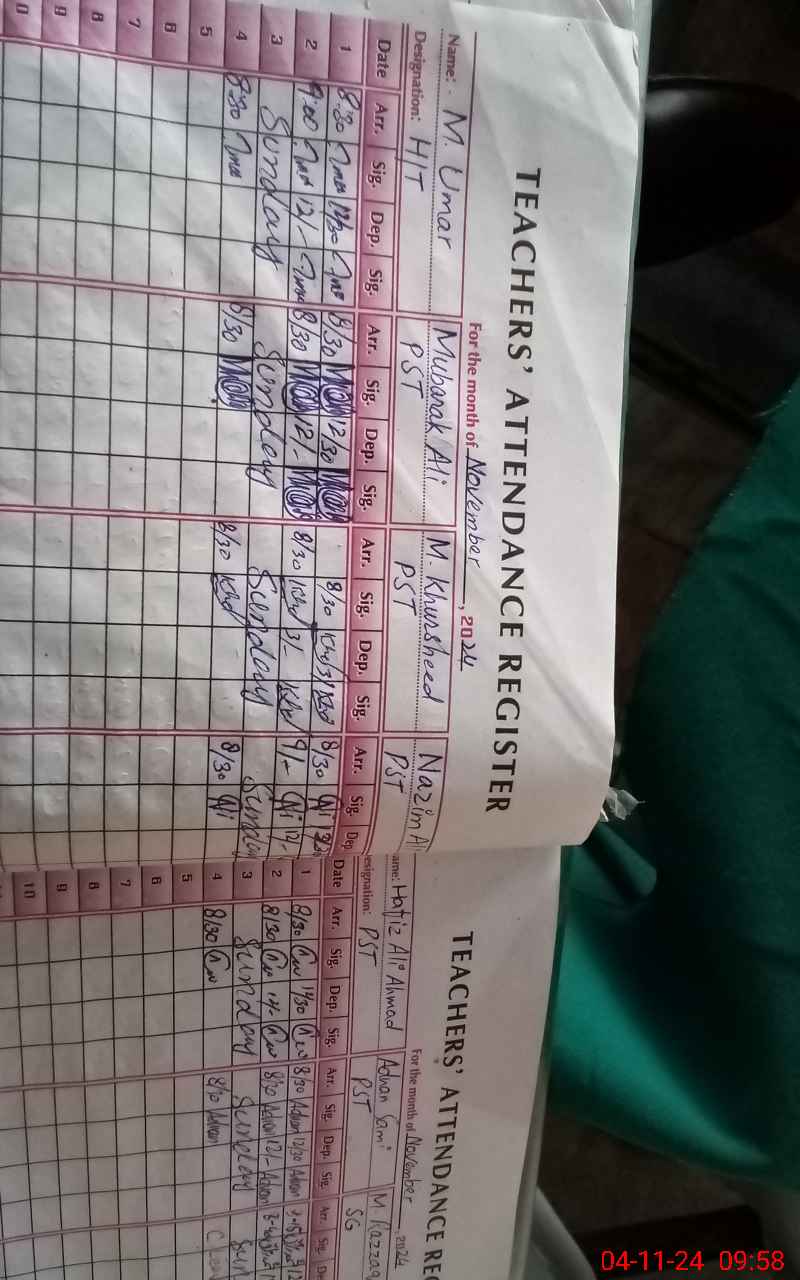 TEACHERS' ATTENDANCE REGISTER
For the month of November, 2024
Name: M. Umar Mubarak Ali M. Khursheed Nazim A
Designation: HIT PST PST PST
Date Arr. Sig. Dep. Sig. Arr. Sig. Dep. Sig. Arr. Sig. Dep. Sig. Arr. Sig. Dep
1 8:30 12/30 8/30 12/30 8/30 8/30
2 9:00 12/- 8/30 12/- 8/30 3/- 9/- 12/-
3 Sunday Sunday Sunday Sunday
4 8:30 8/30 8/30 8/30
5
6
7
8
9
TEACHERS' ATTENDANCE REG
For the month of November, 2024
ame: Hafiz Ali Ahmad Adnan Sami M Razzaq
esignation: PST PST SG
Date Arr. Sig. Dep. Sig. Arr. Sig. Dep. Sig. Arr. Sig. De
1 8/30 8/30 Adnan 12/30 Adnan
2 8/30 8/30 Adnan 12/- Adnan
3 Sunday Sunday Sun
4 8/30 8/30 Adnan
5
6
7
8
9
10
04-11-24 09:58